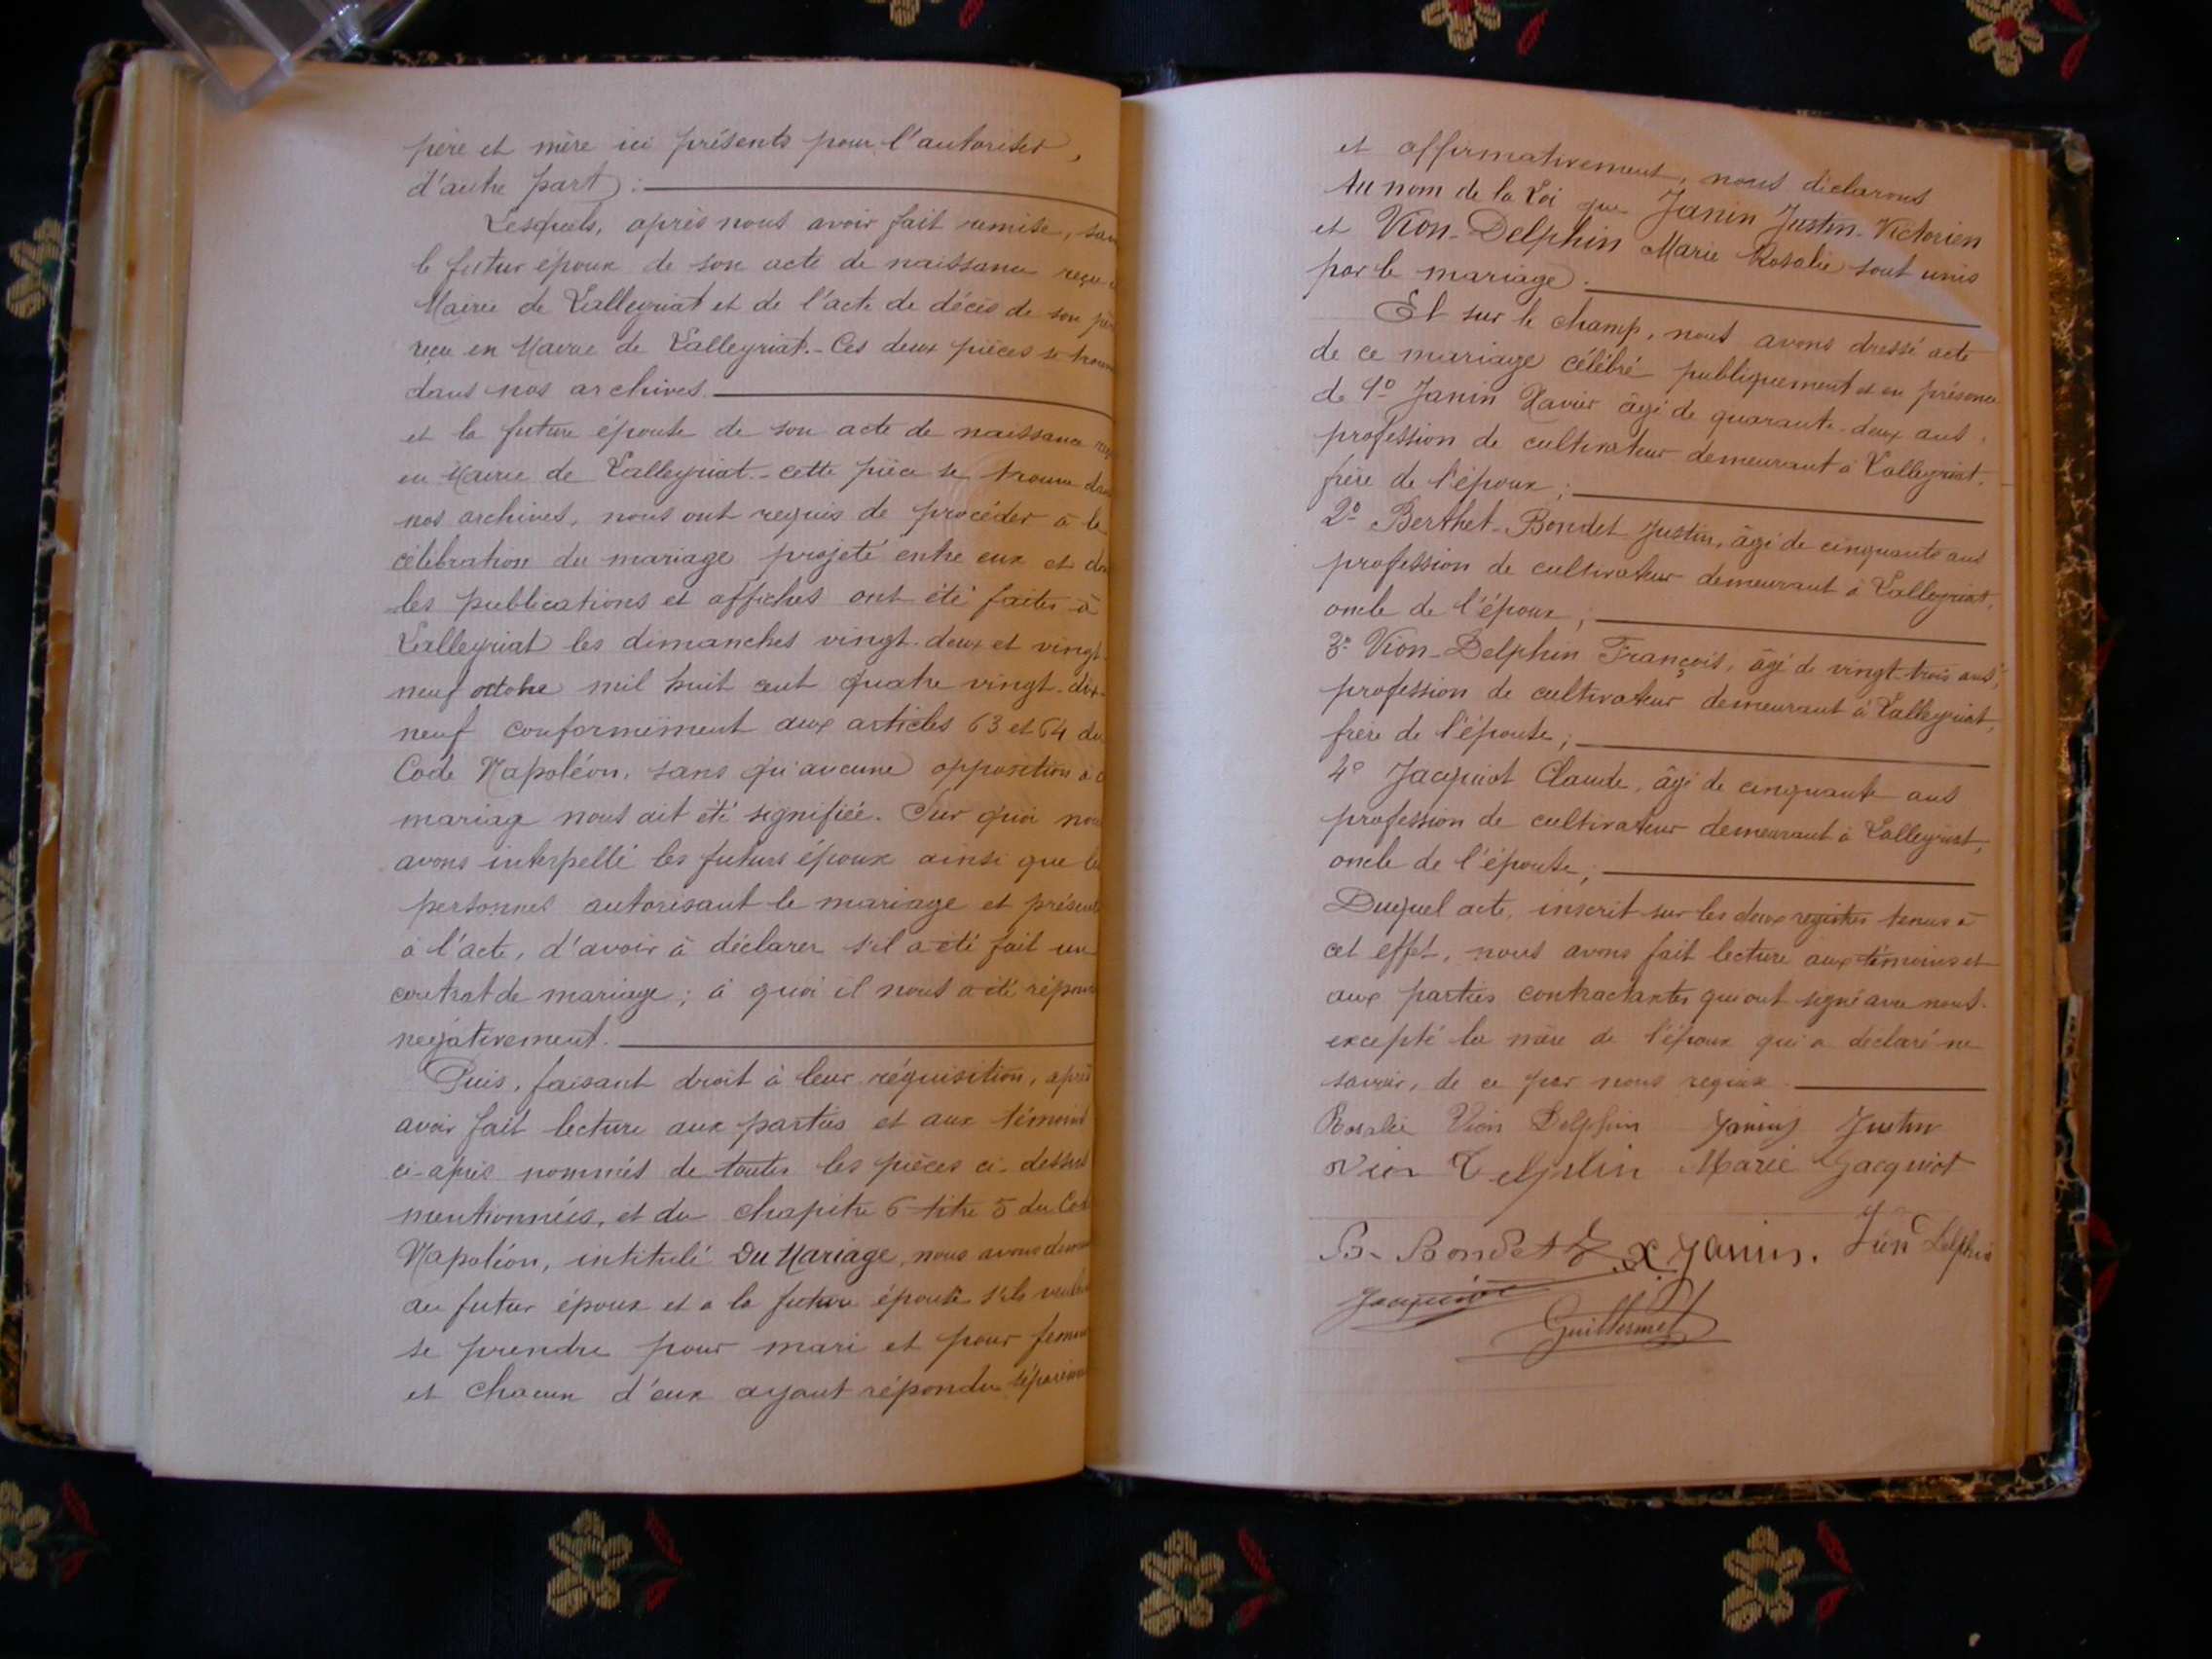 père et mère ici présents pour l'autoriser,
d'autre part :
Lesquels, après nous avoir fait remise,
le futur époux de son acte de naissance reçu
Mairie de Lalleyriat et de l'acte de décès de son
reçu en Mairie de Lalleyriat. - Ces deux pièces se
dans nos archives.
et la future épouse de son acte de naissance
en Mairie de Lalleyriat. - cette pièce se trouve
nos archives, nous ont requis de procéder à la
célébration du mariage projeté entre eux et
les publications et affiches ont été faites à
Lalleyriat les dimanches vingt-deux et vingt-
neuf octobre mil huit cent quatre vingt-dix-
neuf conformément aux articles 63 et 64 du
Code Napoléon, sans qu'aucune opposition à
mariage nous ait été signifiée. Sur quoi
avons interpellé les futurs époux ainsi que
personnes autorisant le mariage et
à l'acte, d'avoir à déclarer s'il a été fait un
contrat de mariage ; à quoi il nous a été
négativement.
Puis, faisant droit à leur réquisition,
avoir fait lecture aux parties et aux témoins
ci-après nommés de toutes les pièces ci-dessus
mentionnées, et du chapitre 6 titre 5 du
Napoléon, intitulé Du Mariage, nous avons
au futur époux et à la future épouse s'ils
se prendre pour mari et pour
et chacun d'eux ayant répondu
et affirmativement, nous déclarons
Au nom de la Loi que Janin Justin-Victorien
et Vion-Delphin Marie Rosalie sont unis
par le mariage :
Et sur le champ, nous avons dressé acte
de ce mariage célébré publiquement et en présence
de 1º Janin Xavier âgé de quarante-deux ans,
profession de cultivateur demeurant à Lalleyriat,
frère de l'époux ;
2º Berthet-Bondet Justin, âgé de cinquante ans
profession de cultivateur demeurant à Lalleyriat,
oncle de l'époux ;
3º Vion-Delphin François, âgé de vingt-trois ans,
profession de cultivateur demeurant à Lalleyriat,
frère de l'épouse ;
4º Jacquiot Claude, âgé de cinquante ans
profession de cultivateur demeurant à Lalleyriat,
oncle de l'épouse ;
Duquel acte, inscrit sur les deux registres tenus à
cet effet, nous avons fait lecture aux témoins et
aux parties contractantes qui ont signé avec nous.
excepté la mère de l'époux qui a déclaré ne
savoir, de ce par nous requis.
Rosalie Vion Delphin Janin Justin
Vion Delphin Marie Jacquiot
B- Bondet J X Janin. Vion Delphin
Jacquiot
Guillermet